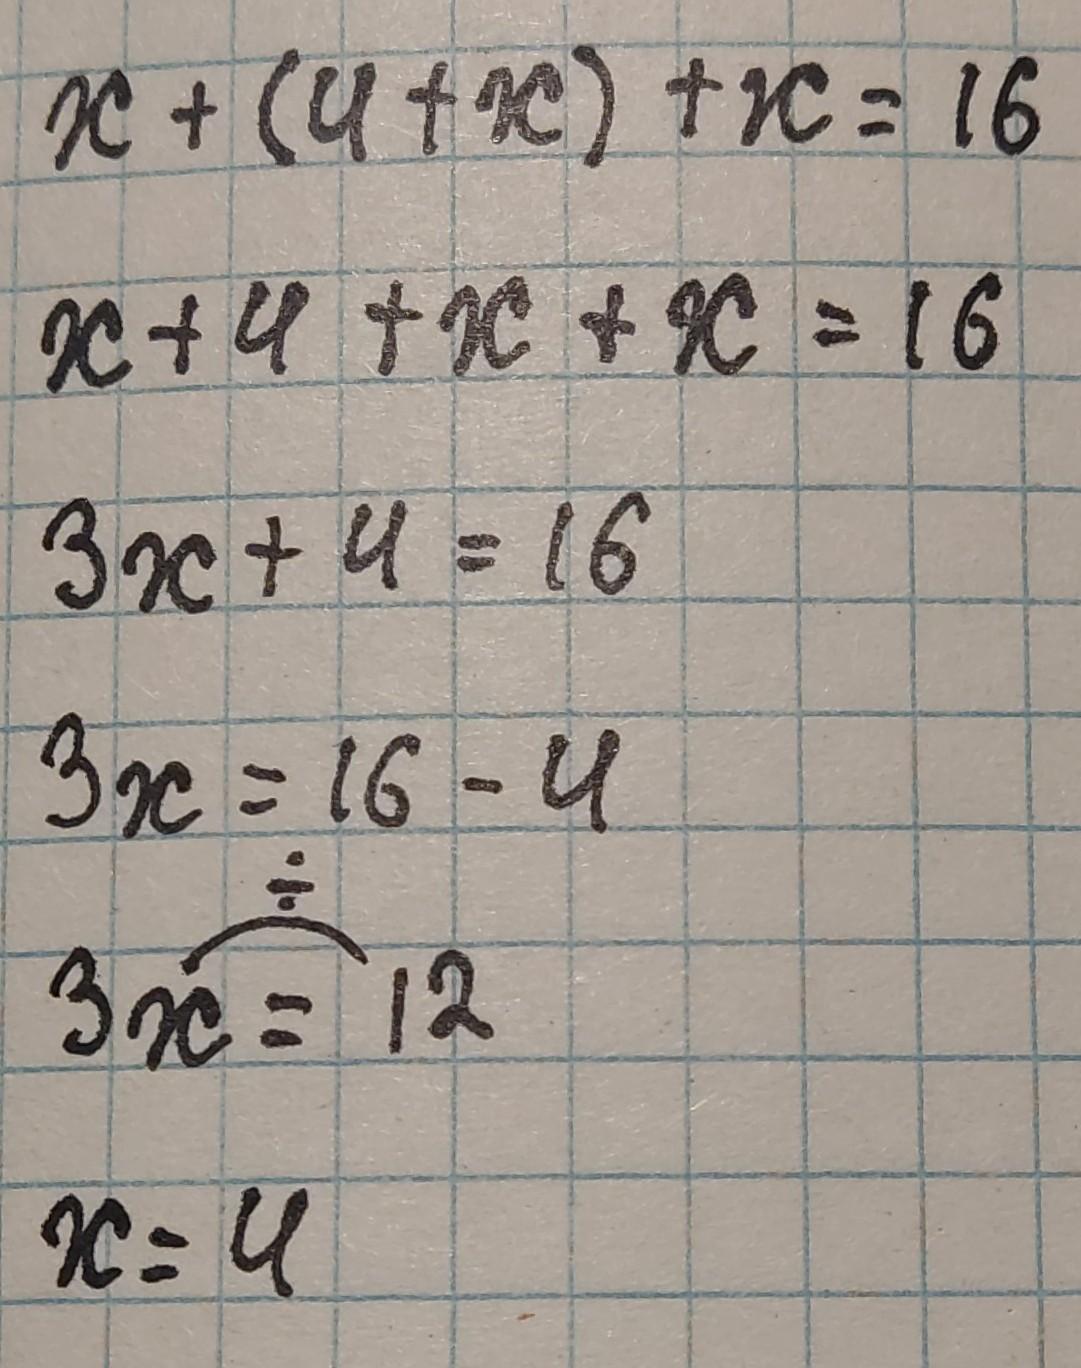 x + (4 + x) + x = 16
x + 4 + x + x = 16
3x + 4 = 16
3x = 16 - 4
÷
3x = 12
x = 4